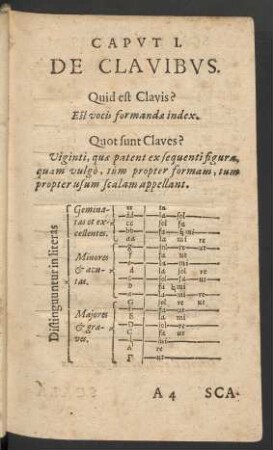 CAPVT I.
DE CLAVIBVS.
Quid est Clavis?
Est vocis formandæ index.
Quot sunt Claves?
Viginti, quæ patent ex sequenti figura,
quam vulgò, tùm propter formam, tum
propter usum scalam appellant.
Distinguuntur in literas
Gemina-
tas et ex-
cellentes.
ee la
dd la sol
cc sol fa
bb fa ♮ mi
aa la mi re
Minores
& acu-
tas.
Majores
& gra-
ves.
G sol re ut
F fa ut
E la mi
D sol re
C fa ut
A re
Γ ut
A 4 SCA-